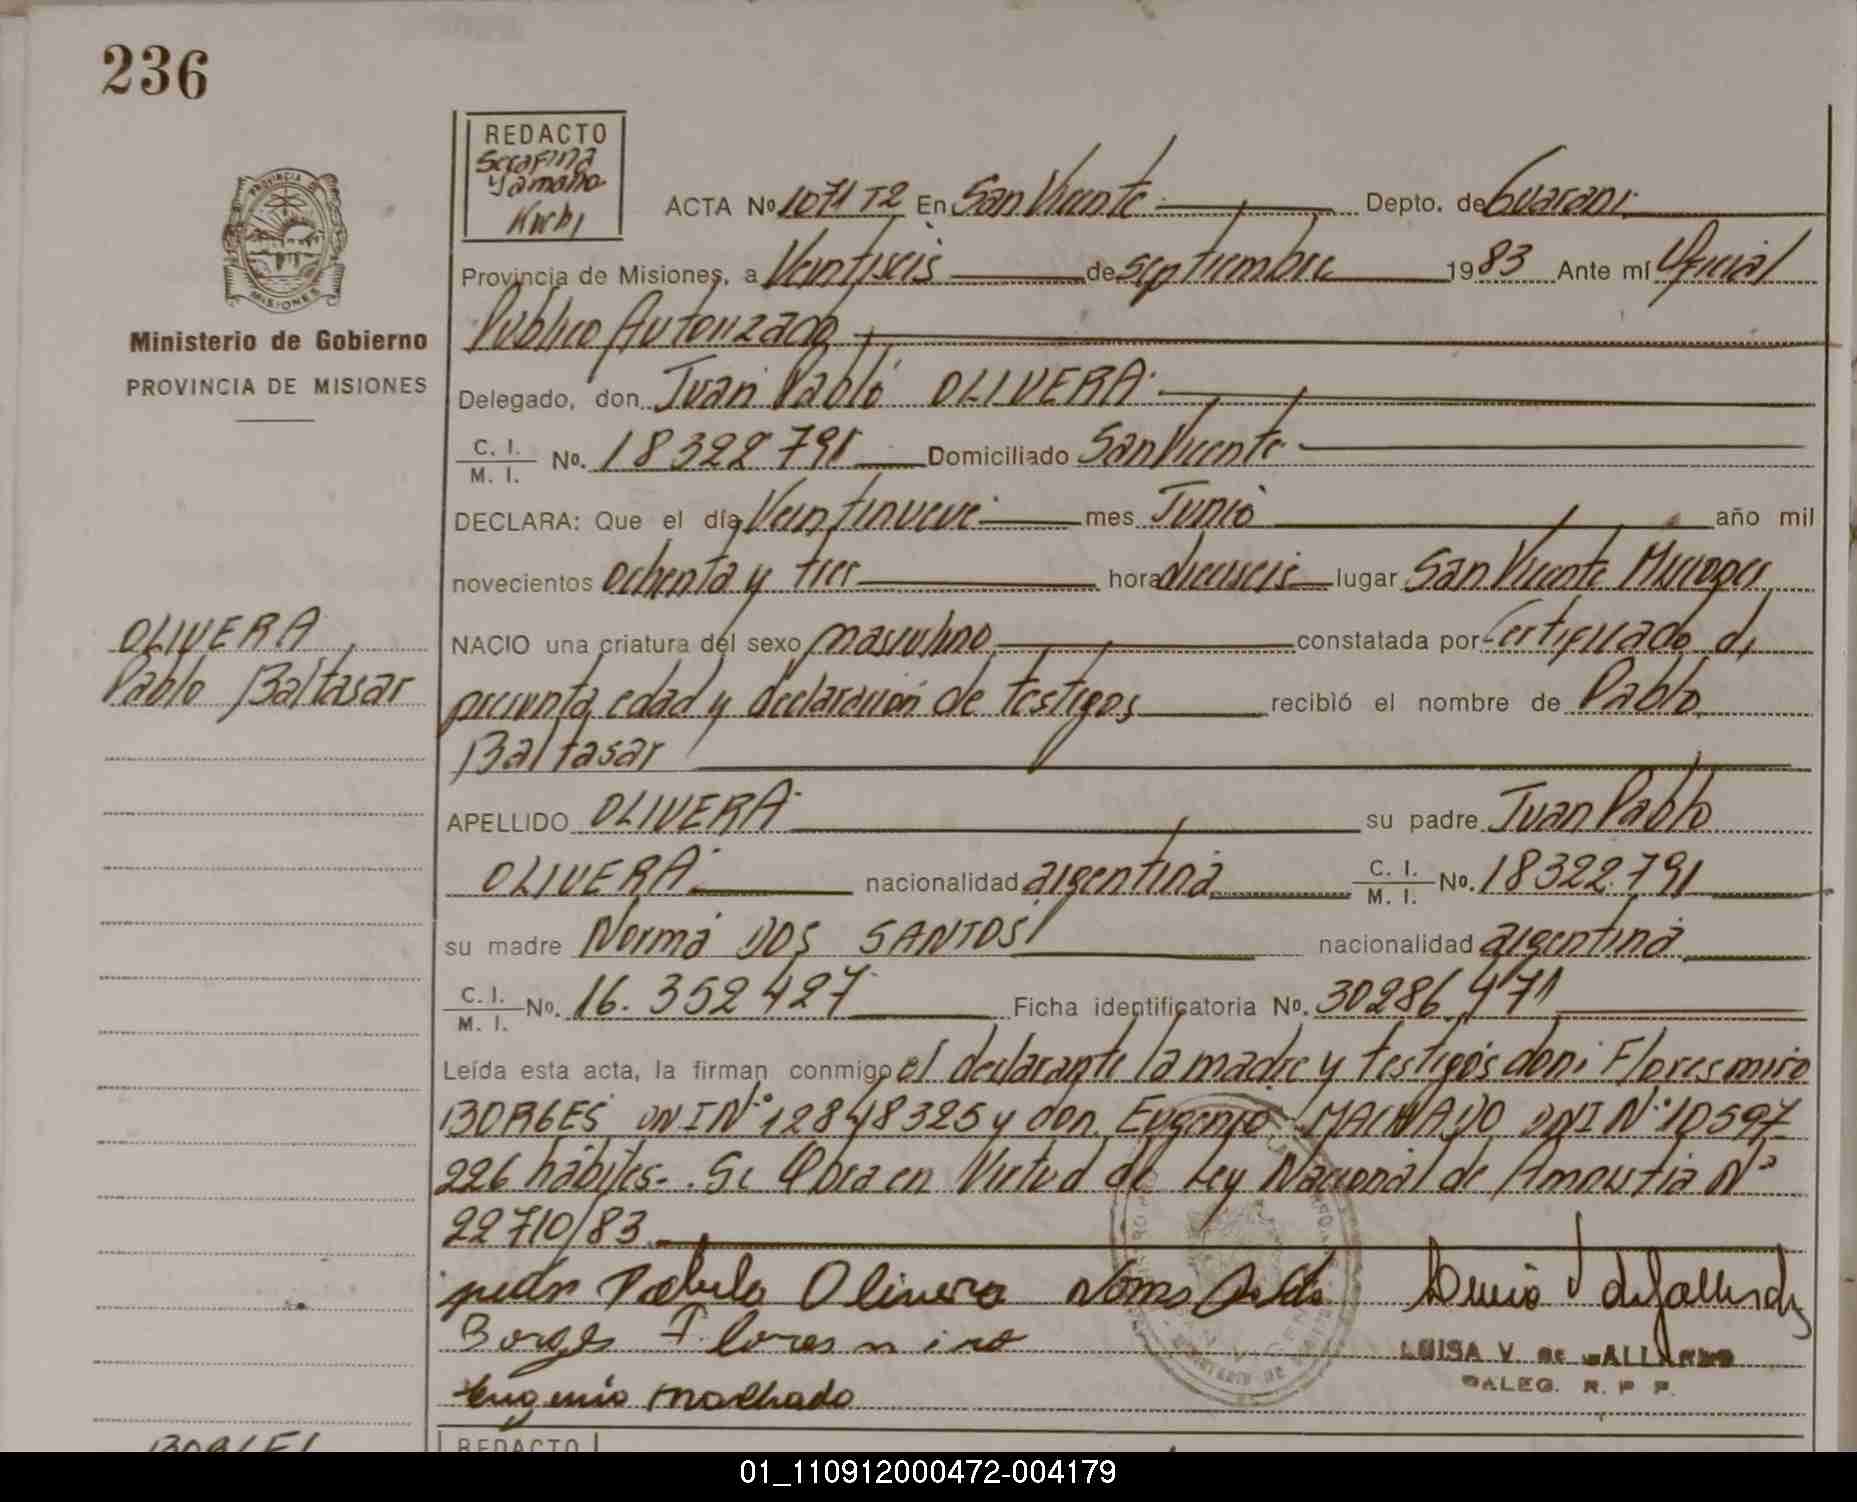 236
REDACTO
Serafina
Yamaha
PROVINCIA DE
MISIONES
ACTA No 1071 T2 En San Vicente Depto. de Guarani
Provincia de Misiones, a Veintiseis de septiembre 1983 Ante mí Oficial
Público Autorizado
Ministerio de Gobierno
PROVINCIA DE MISIONES
Delegado, don Juan Pablo OLIVERA
C. I.
M. I. No. 18322791 Domiciliado San Vicente
DECLARA: Que el día Veintinueve mes Junio año mil
novecientos ochenta y tres hora dieciseis lugar San Vicente Misiones
NACIO una criatura del sexo masculino constatada por Certificado de
presunta edad y declaración de testigos recibió el nombre de Pablo
Baltasar
OLIVERA
Pablo Baltasar
APELLIDO OLIVERA su padre Juan Pablo
OLIVERA nacionalidad argentina C. I. M. I. No. 18322.791
su madre Norma DOS SANTOS nacionalidad argentina
C. I. M. I. No. 16.352427 Ficha identificatoria No. 30286.471
Leída esta acta, la firman conmigo el declarante la madre y testigos don: Floresmiro
BORGES DNI N° 12848325 y don Eugenio MACHADO DNI N° 10597
226 hábiles-. Se Obra en Virtud de Ley Nacional de Amnistia N°
22710/83
Olivera
Borges Floresmiro
LUISA V. de
DALEG. R. P. P.
Eugenio Machado
REDACTO
01_110912000472-004179